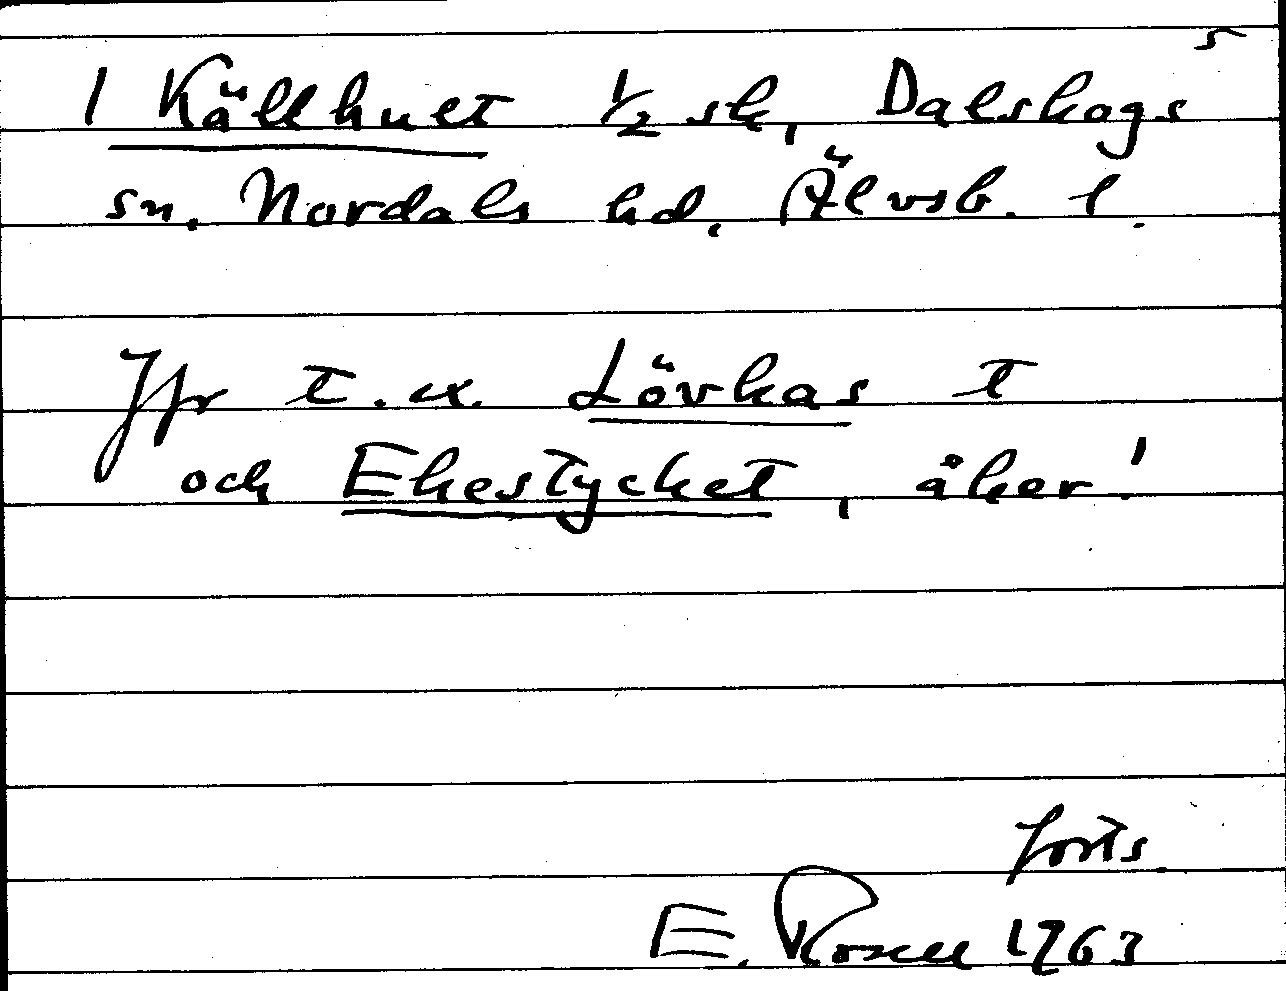 5
1 Källhult 1/2 sk, Dalskogs
sn. Nordals hd, Älvsb. l.
Jfr t.ex. Lövkas t
och Ekestycket, åker!
forts.
E. Rosell 1963